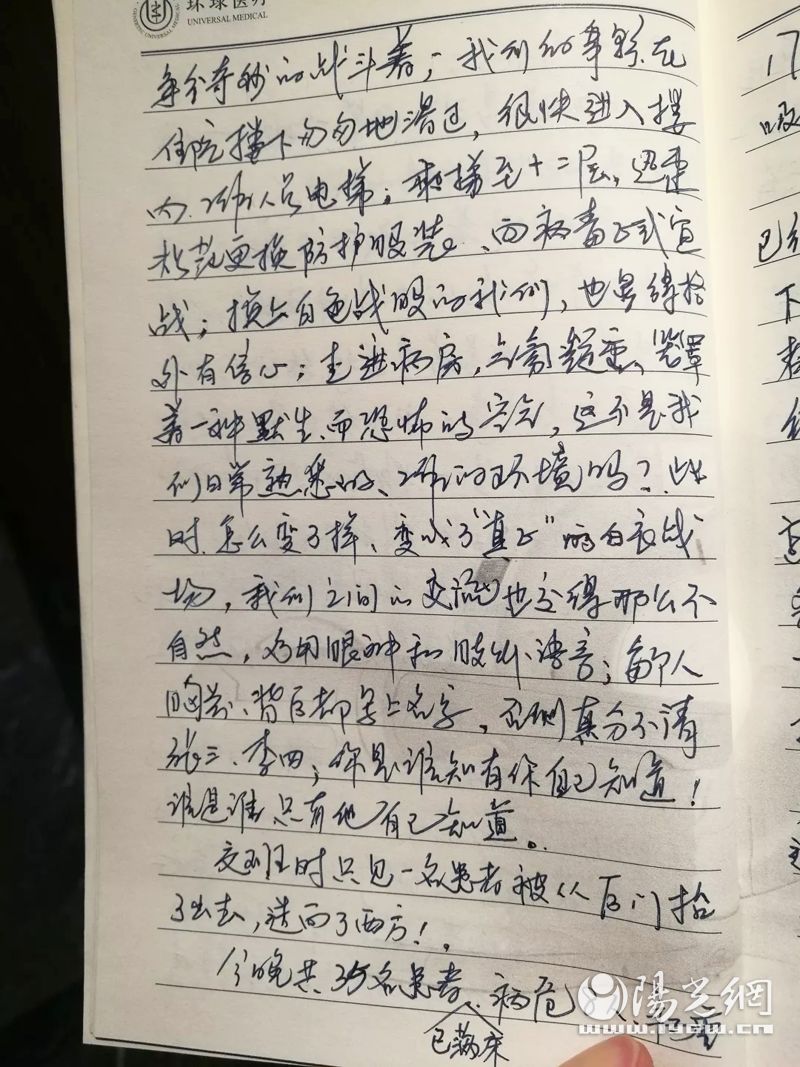 环球医疗
UNIVERSAL MEDICAL
争分夺秒的战斗着；我们的车影在
住院楼下匆匆地滑过，很快进入楼
内工作人员电梯；乘梯至十二层，迅速
规范更换防护服装、向病毒正式宣
战；换上白色战服的我们，也显得格
外有信心；走进病房，气氛凝重、笼罩
着一种默生、而恐怖的空气，这不是我
们日常熟悉的、工作的环境吗？此
时怎么变了样、变成了“真正”的白衣战
场，我们之间的交流也变得那么不
自然，多用眼神和肢体语言；每个人
胸前、背后都写上名字，否则真分不清
张三、李四；你是谁知有你自己知道！
谁是谁只有他自己知道。
交班时只见一名患者被从后门抬
了出去，送向了西方！
今晚共35名患者、病危 人
已满床
阳光网